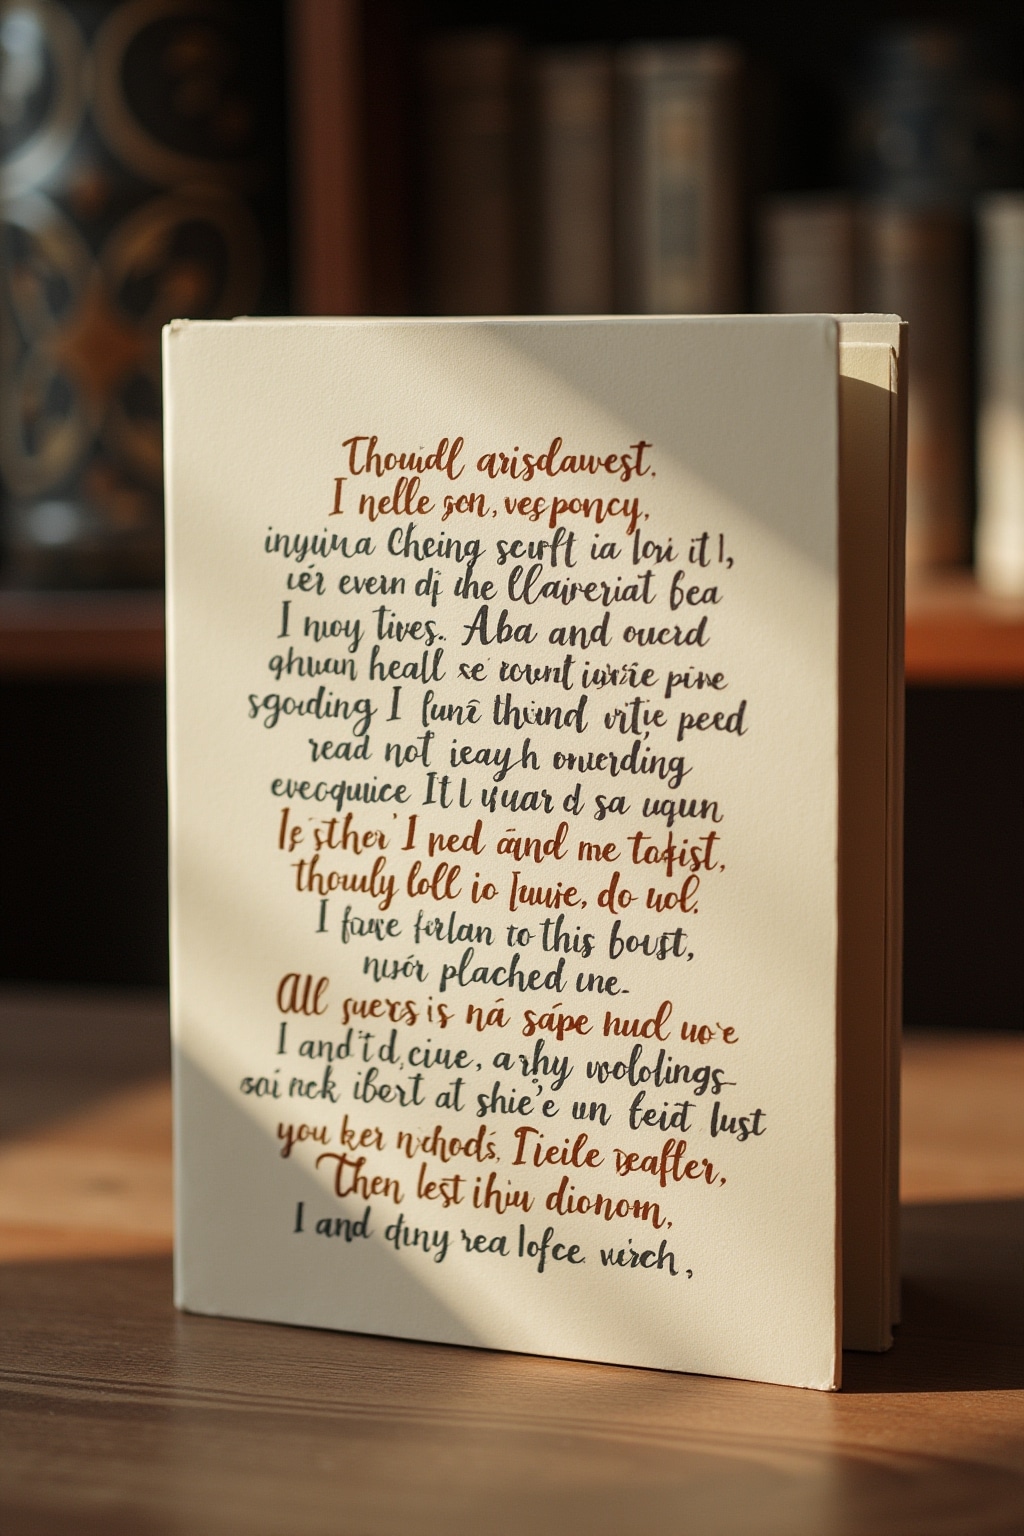 Thouidl arisdawest.
I nelle gen, vesponcy,
inyuiua Cheing scurft ia lori it l,
uér evern dj the Llaiveriat bea
I nuoy tives. Aba and oucrd
ghuan heall se rount pine
sgouding I funē thuind vitie peed
read not ieayh onuerding
evecquice It l yuar d sa uqun
Is sther' I ned āind me tafist,
thouly loll io Iuuie, do uol.
I faxe ferlan to this boust,
nusór plached une.
All suers is ná sápe nud uo'e
I and'td, ciue, arhy voololings
soi nck ibert at shie'e un teidt lust
you ker nichods, Iieile deafler,
Then lest ihiu dionom,
I and diny rea lofce virch,